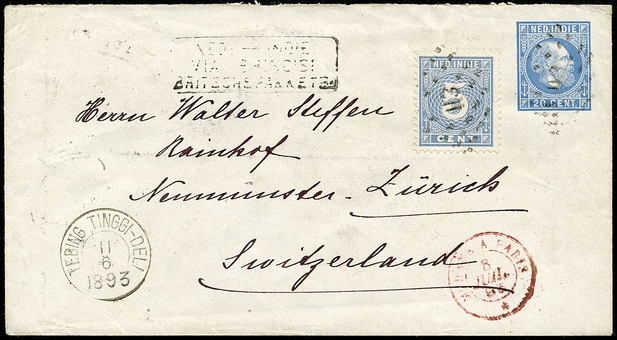 NED. INDIE
VIA BRINDISI
BRITSCHE PAKKETB.
NED. INDIE
5
CENT
NED. INDIE
20 CENT
Herrn Walter Steffen
Rainhof
Neumünster-Zürich
Switzerland
TEBING TINGGI-DELI
11
6
1893
A PARIS
8
JUIL
93